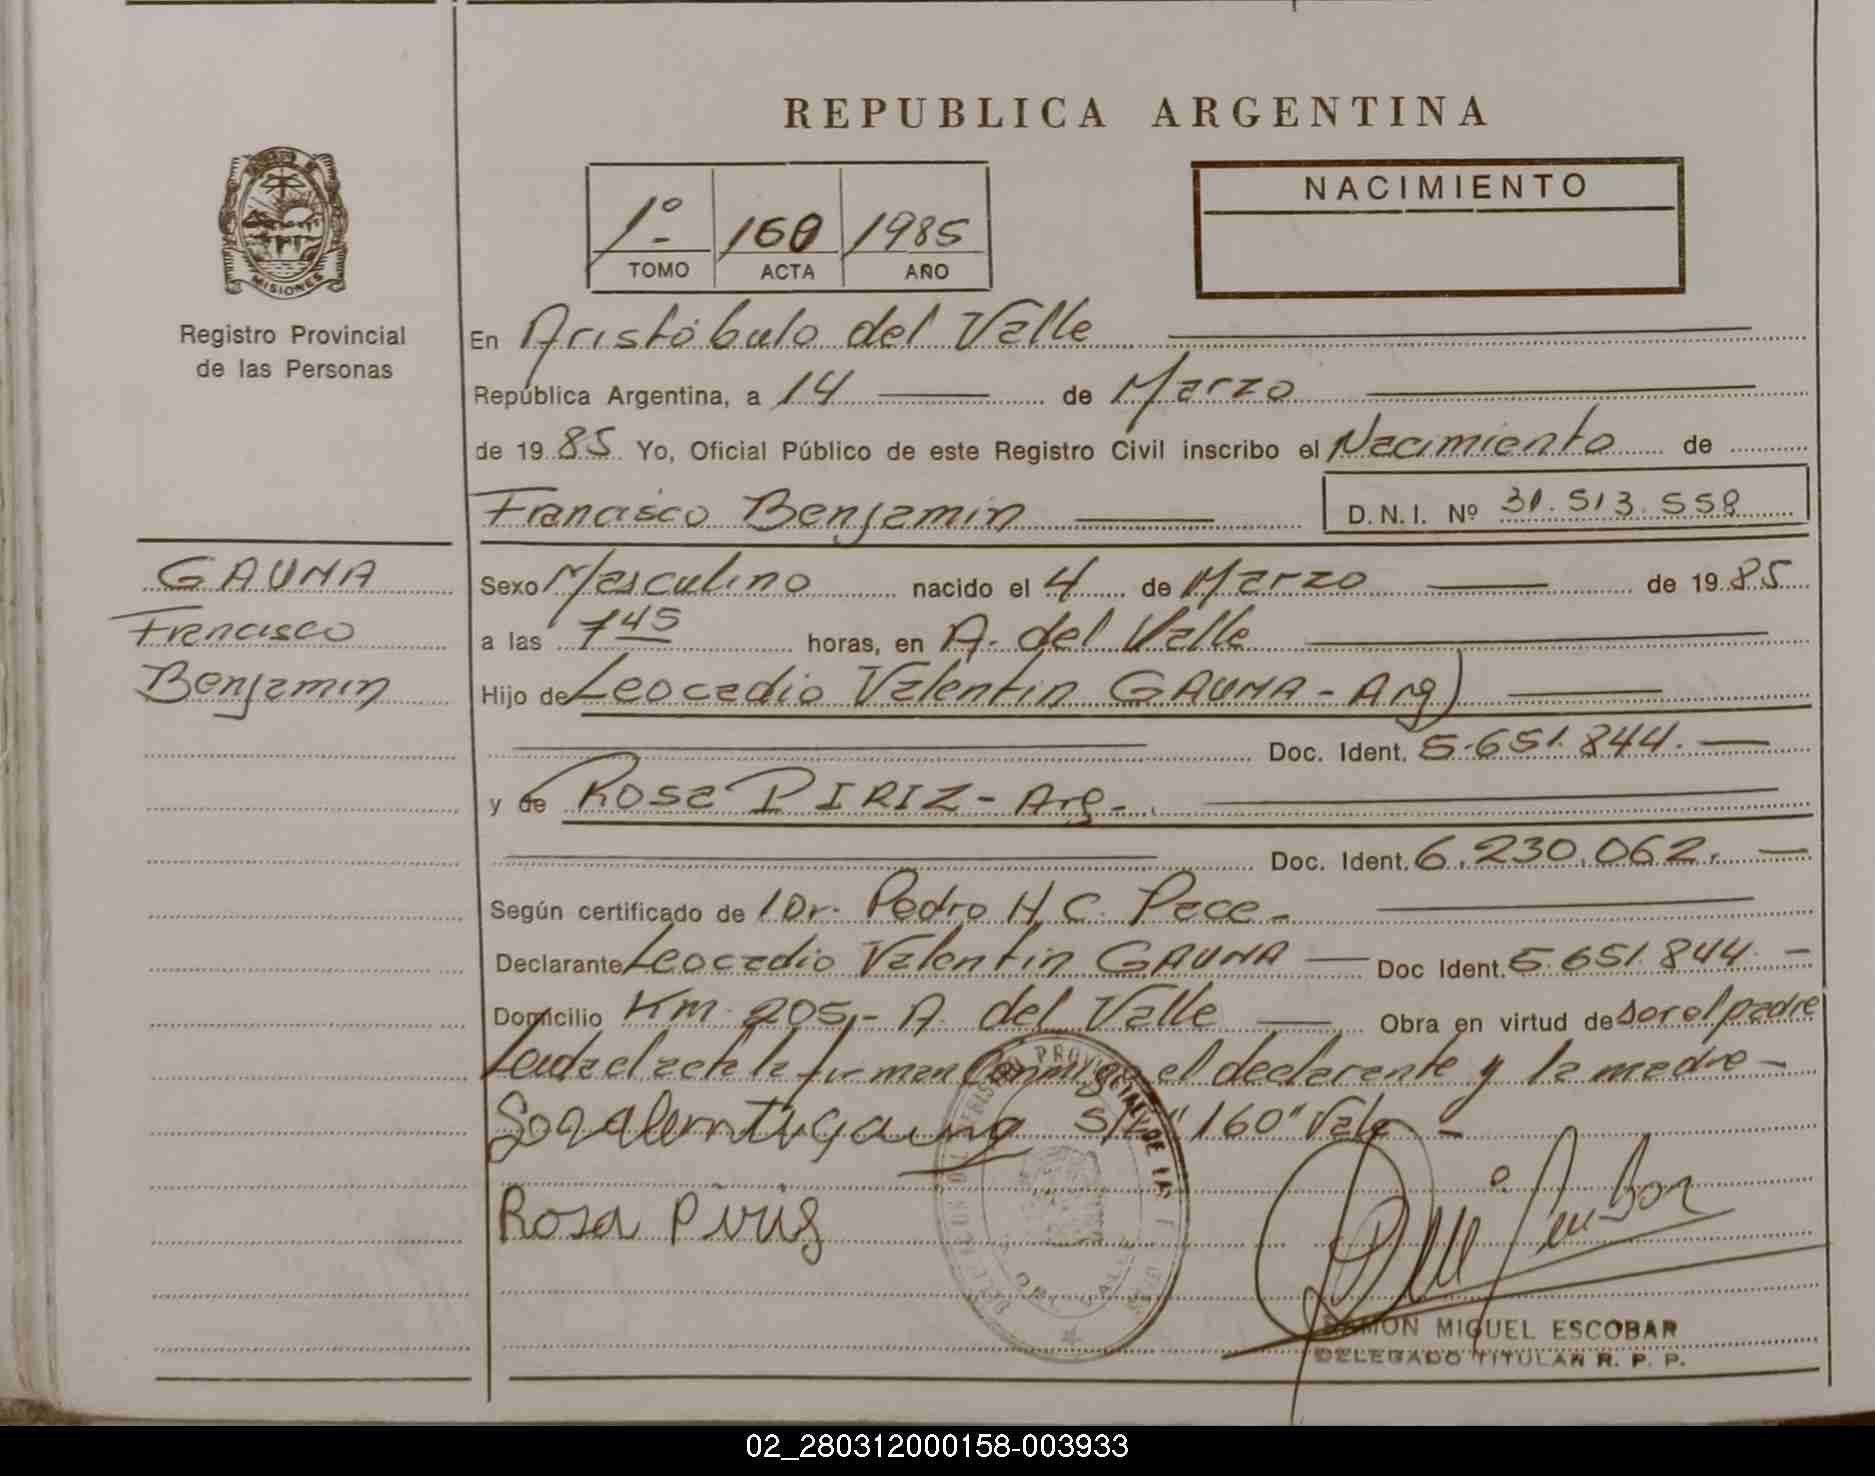 REPUBLICA ARGENTINA
NACIMIENTO
1º 160 1985
TOMO ACTA AÑO
MISIONES
Registro Provincial
de las Personas
En Aristóbulo del Valle
República Argentina, a 14 de Marzo
de 1985 Yo, Oficial Público de este Registro Civil inscribo el Nacimiento de
Francisco Benjamin D.N.I. Nº 31.513.558
GAUNA
Francisco
Benjamin
Sexo Masculino nacido el 4 de Marzo de 1985
a las 7 45 horas, en A. del Valle
Hijo de Leocadio Valentin GAUNA - Arg)
Doc. Ident. 5.651.844.
y de Rosa PIRIZ - Arg.
Doc. Ident. 6.230.062.
Según certificado de Dr. Pedro H. C. Pace
Declarante Leocadio Valentin GAUNA Doc Ident. 5.651.844
Domicilio Km. 205 - A. del Valle Obra en virtud de Ser el padre
Leida el acta la firman conmigo el declarante y la madre
S/R "160" Vale
Rosa Piris
DEL VALLE
RAMON MIGUEL ESCOBAR
DELEGADO TITULAR R. P. P.
02_280312000158-003933